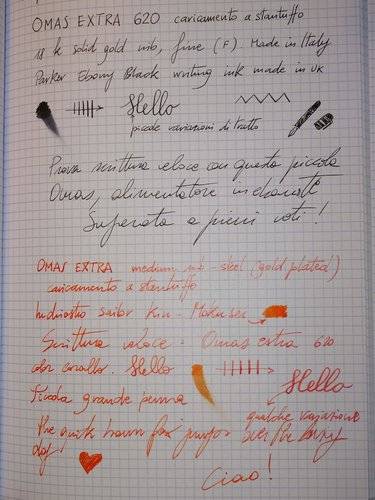 OMAS EXTRA 620 caricamento a stantuffo
18 k solid gold nib, fine (F). Made in Italy
Parker Ebony Black writing ink made in UK
Hello
piccole variazioni di tratto
Prova scrittura veloce con questa piccola
Omas, alimentatore in ebanite
Superata a pieni voti!
OMAS EXTRA medium nib - steel (gold plated)
caricamento a stantuffo
Inchiostro Sailor Kin - Mokusei
Scrittura veloce: Omas extra 620
color corallo. Hello
Hello
Piccola grande penna
qualche variazione
The quick brown fox jumps over the lazy
dog!
Ciao!